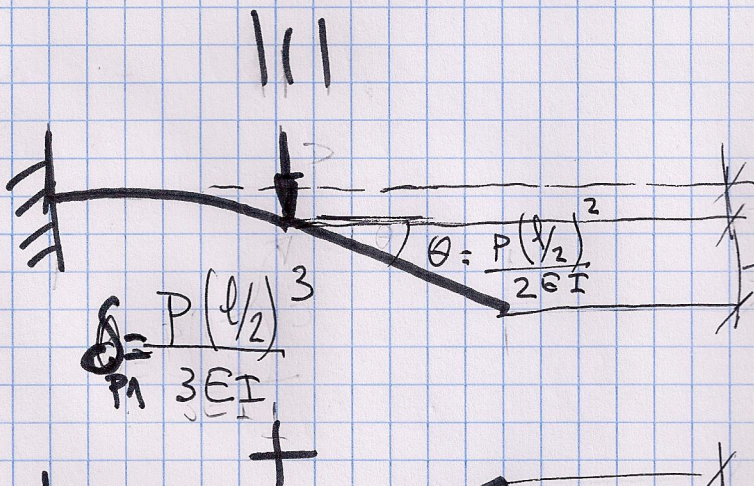 P
θ = P(l/2)²
2EI
δP1 = P(l/2)³
3EI
+